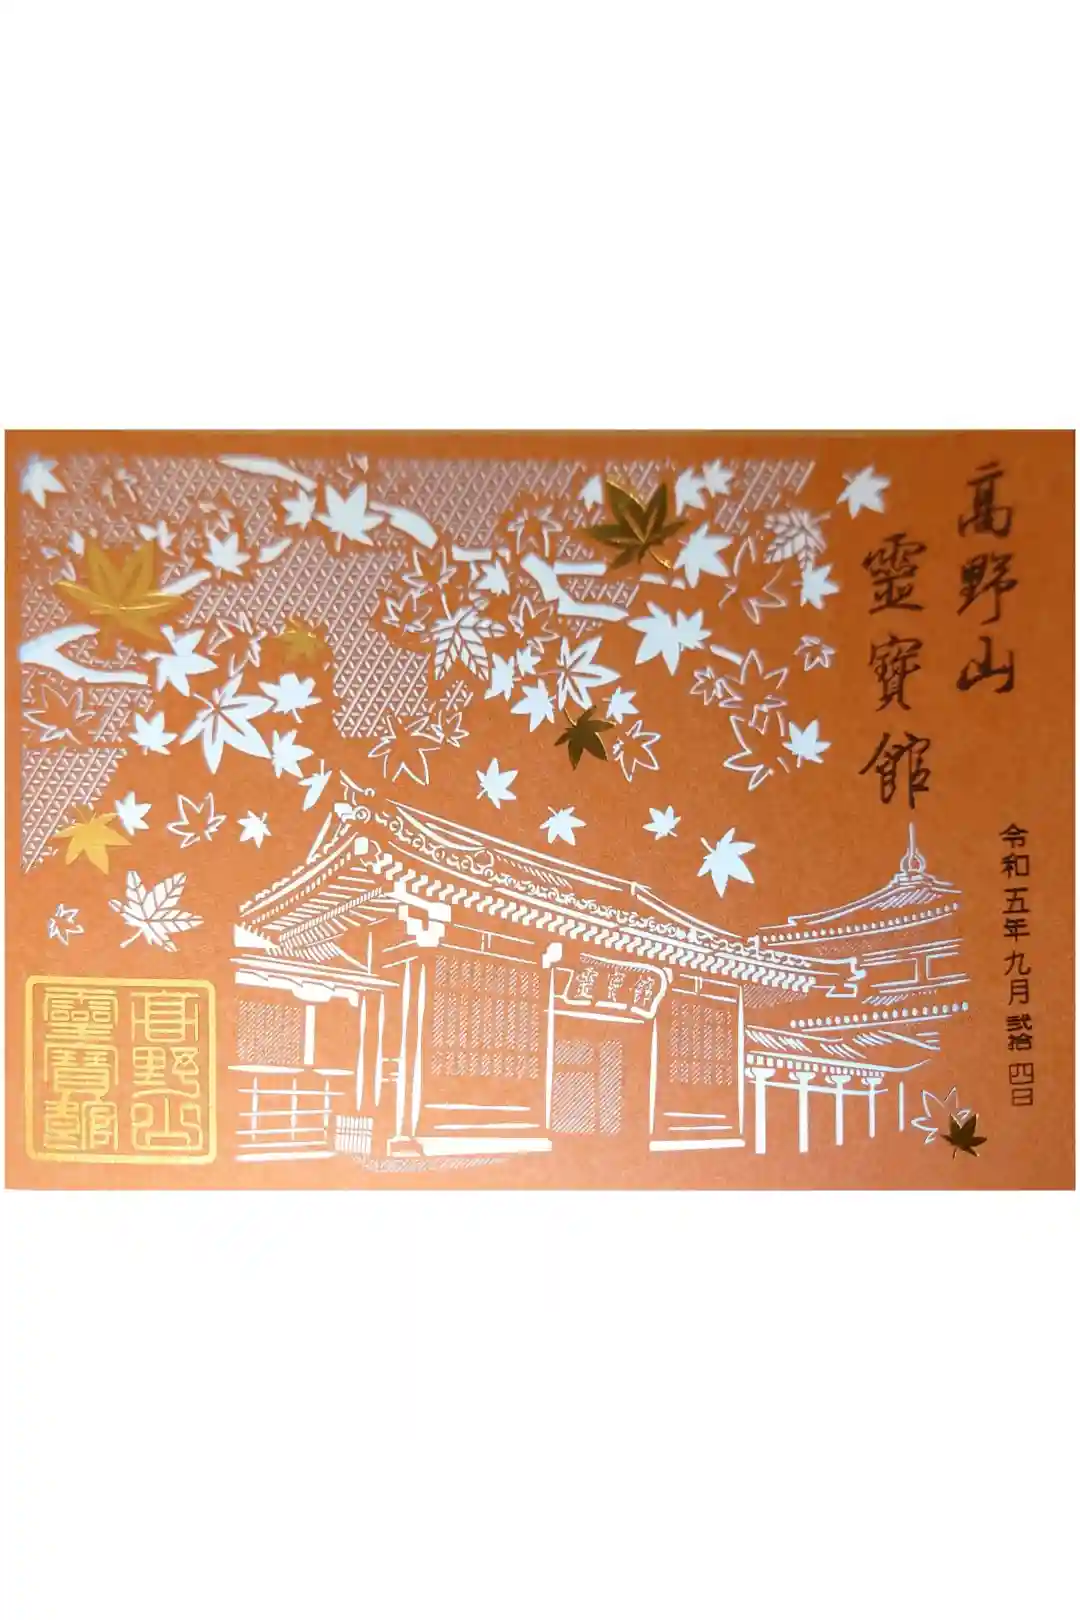 高野山
靈寶館
令和五年九月弐拾四日
靈寶館
高野山
靈寶館